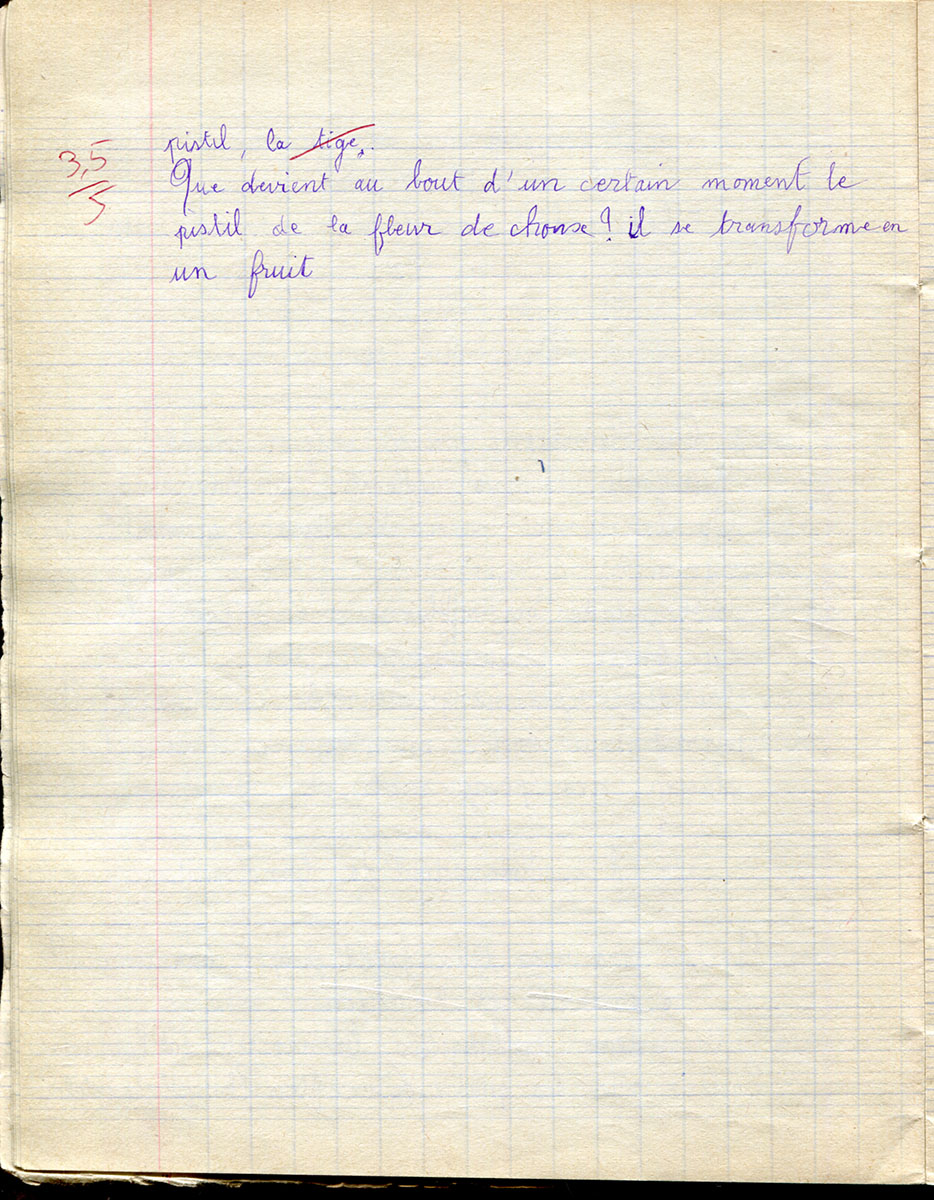 3,5
5
pistil, la tige.
Que devient au bout d'un certain moment le
pistil de la fleur de chouse? il se transforme en
un fruit